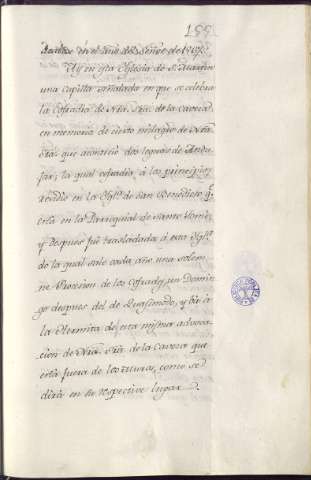 155
en el año del Señor de 1707.
Ay en esta Yglesia de Sn. Martin
una capilla señalada en que se celebra
la Cofradia de Nra. Sra. de la Cavera
en memoria de cierto milagro de Nra.
Sra. que acontecio dos leguas de
la qual cofradia, a los principios
residio en la Yglª. de San Benedicto q.
està en la Parroquial de Santo Tomè,
y despues fuè trasladada à esta Yglª.
de la qual sale cada año una solem-
ne Procesion de los Cofrades, un Domin-
go despues del de Quasimodo, y và à
la Hermita de esta misma advoca-
cion de Nra. Sra. de la Cavera que
està fuera de los muros, como se
dirà en su respective lugar.